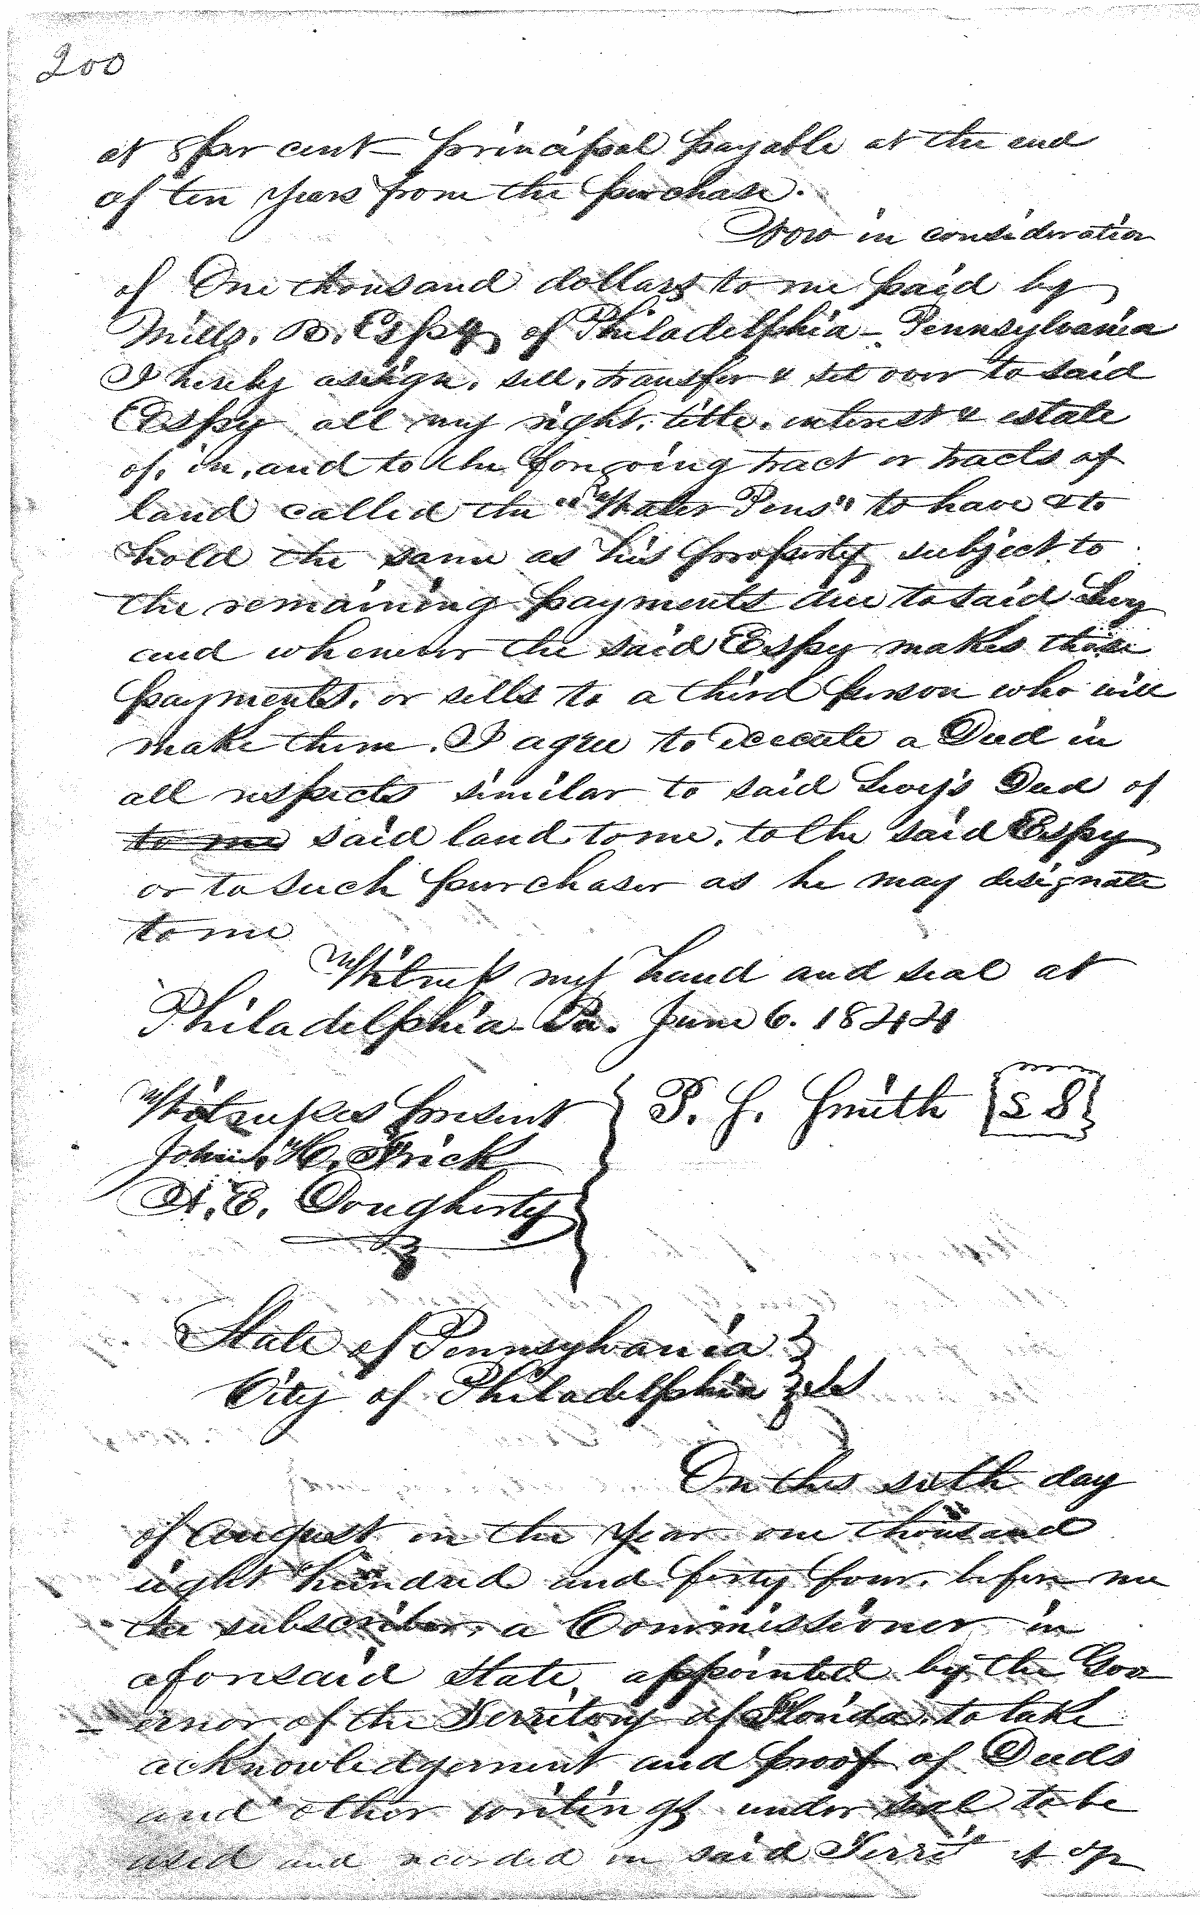 200
at 8 per cent – principal payable at the end
of ten Years from the purchase.
Now in consideration
of One thousand dollars to me paid by
Mills. B. Espy, of Philadelphia – Pennsylvania
I hereby assign, sell, transfer & set over to said
Espy all my right, title, interest & estate
of, in, and to the foregoing tract or tracts of
land called the "Water Pens" to have & to
hold the same as his property subject to
the remaining payments due to said Levy
and whenever the said Espy makes those
payments, or sells to a third person who will
make them. I agree to execute a Deed in
all respects similar to said Levy's Deed of
to me said land to me, to the said Espy
or to such purchaser as he may designate
to me
Witness my hand and seal at
Philadelphia Pa. June 6. 1844
Witnesses present } P. S. Smith {S S}
John H. Frick
A. E. Dougherty
State of Pennsylvania }
City of Philadelphia } ss
On this sixth day
of August in the Year one thousand
eight hundred and forty four, before me
the subscriber, a Commissioner in
aforesaid State, appointed by the Gov
ernor of the Territory of Florida, to take
acknowledgement and proof of Deeds
and other writings under seal to be
used and recorded in said Territ